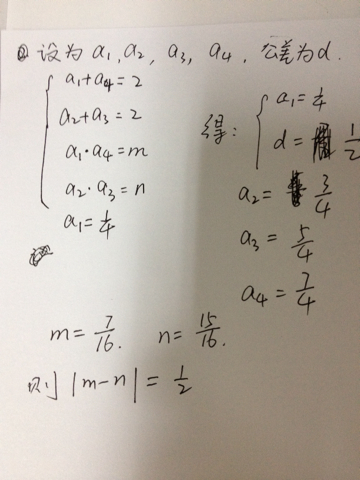 ② 设为 a₁, a₂, a₃, a₄, 公差为d.
a₁+a₄=2
a₂+a₃=2
a₁·a₄=m
a₂·a₃=n
a₁=1/4
得:
a₁=1/4
d=1/2
a₂=3/4
a₃=5/4
a₄=7/4
m=7/16. n=15/16.
则 |m-n|=1/2